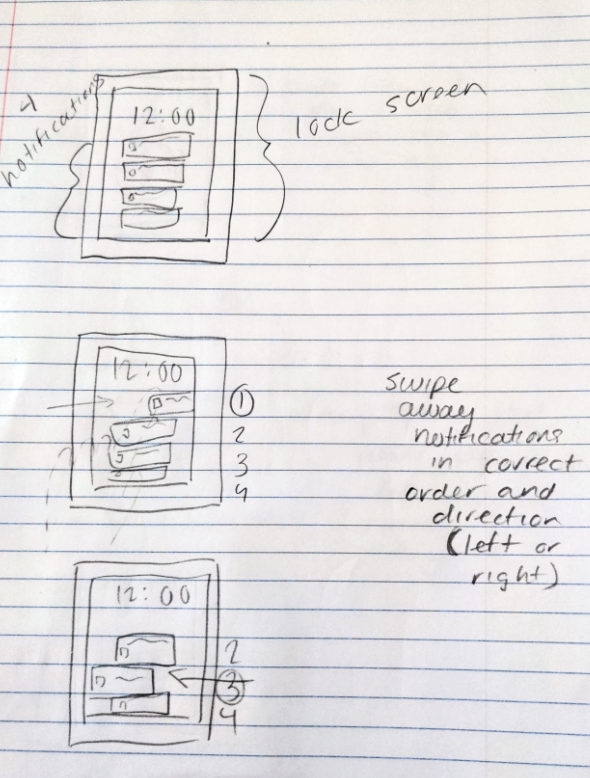 4
notifications
lock screen
12:00
12:00
1
2
3
4
swipe
away
notifications
in correct
order and
direction
(left or
right)
12:00
2
3
4